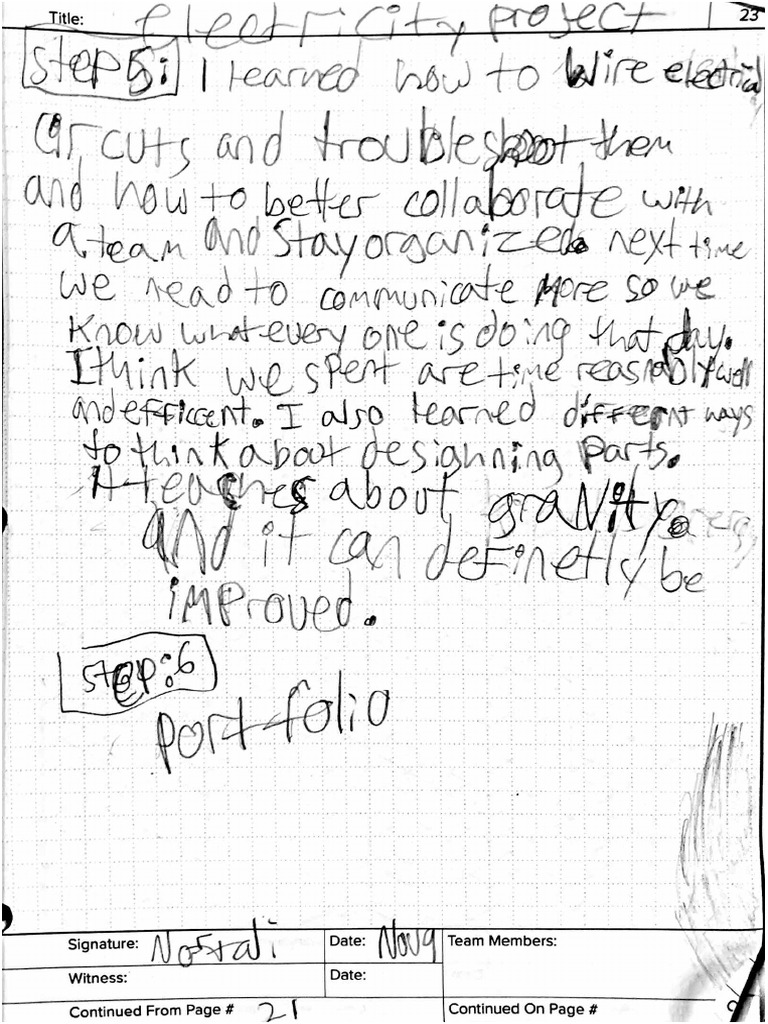 Title: Electricity project 23
Step 5: I learned how to wire electrical
circuts and troubleshoot them
and how to better collaborate with
a team and stay organized. next time
we nead to communicate more so we
know what every one is doing that day.
I think we spent are time reasnably well
and efficcent. I also learned different ways
to think about designning parts.
It teaches about gravity.
and it can definetly be
improved.
Step:6
portfolio
Signature: Date: Nov 9 Team Members:
Witness: Date:
Continued From Page # 21 Continued On Page #